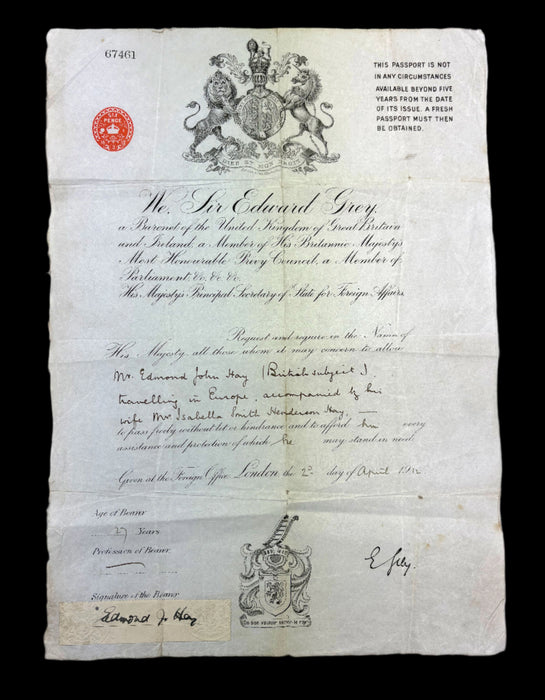 67461
THIS PASSPORT IS NOT
IN ANY CIRCUMSTANCES
AVAILABLE BEYOND FIVE
YEARS FROM THE DATE
OF ITS ISSUE. A FRESH
PASSPORT MUST THEN
BE OBTAINED.
SIX
PENCE
DIEU ET MON DROIT
We, Sir Edward Grey,
a Baronet of the United Kingdom of Great Britain
and Ireland, a Member of His Britannic Majesty's
Most Honourable Privy Council, a Member of
Parliament, &c, &c, &c,
His Majesty's Principal Secretary of State for Foreign Affairs,
Request and require in the Name of
His Majesty, all those whom it may concern to allow
Mr. Edmond John Hay (British subject)
travelling in Europe, accompanied by his
wife Mrs Isabella Smith Henderson Hay,
to pass freely without let or hindrance and to afford him every
assistance and protection of which he may stand in need.
Given at the Foreign Office, London, the 2d day of April 1912
Age of Bearer
27 Years
Profession of Bearer
Signature of the Bearer
Edmond J. Hay
E Grey.
DE BON VOULOIR SERVIR LE ROY